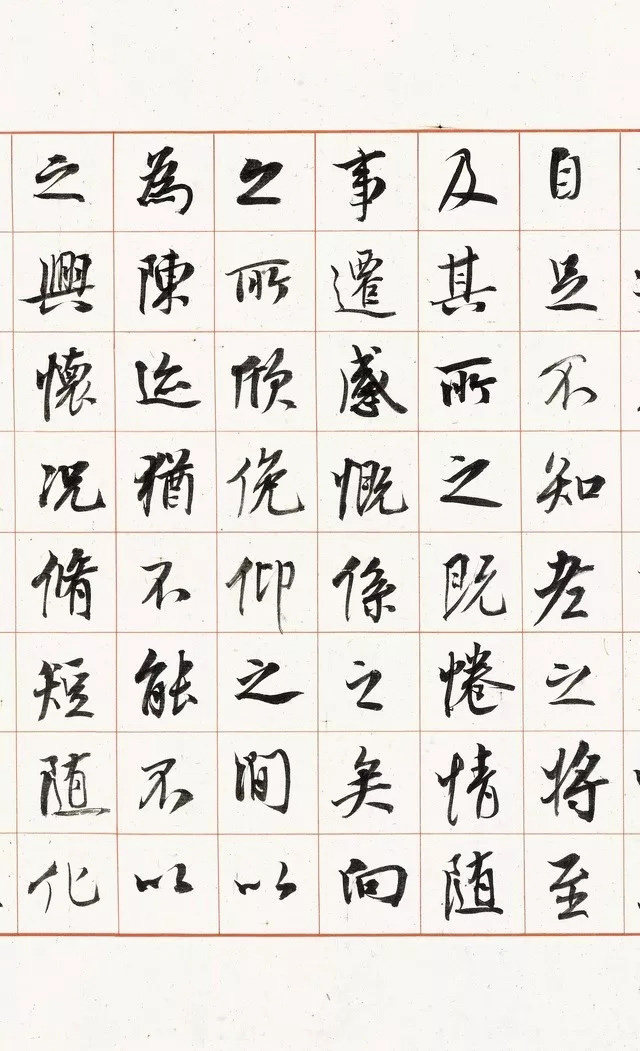 自足不知老之将至
及其所之既惓情随
事遷感慨係之矣向
之所欣俛仰之間以
為陳迹猶不能不以
之興懷況脩短随化